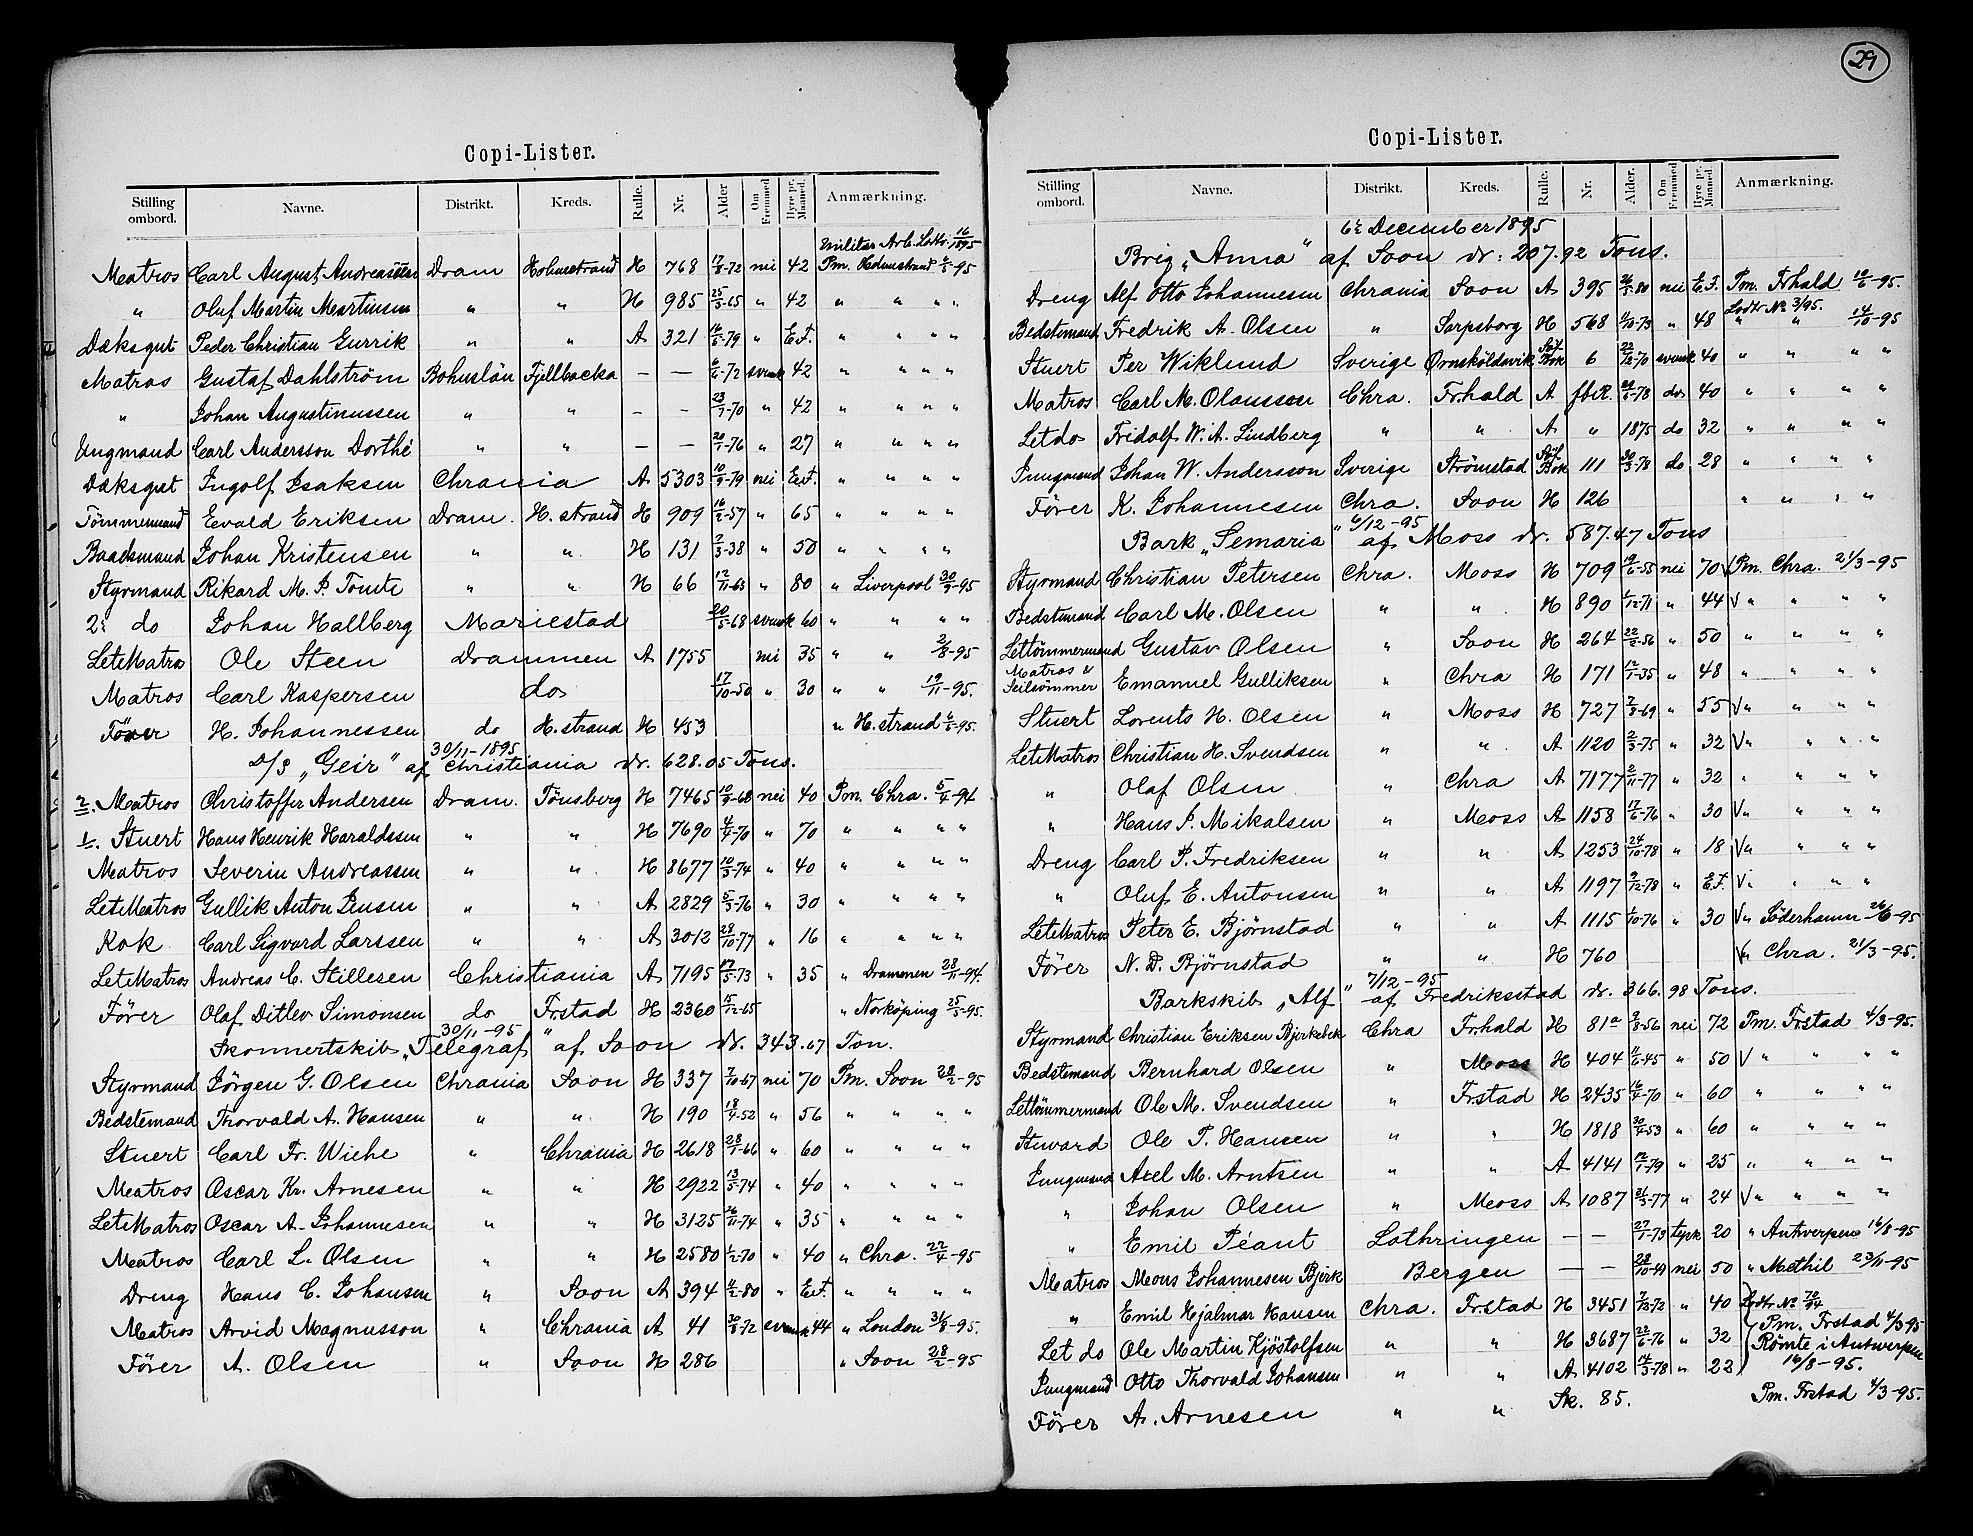 29
Copi-Lister.
Stilling ombord. Navne. Distrikt. Kreds. Rulle. Nr. Alder Om Fremmed Hyre pr. Maaned. Anmærkning.
Militær Arb. Lodtr. 16/1895
Matros Carl August Andreassen Dram Holmestrand H 768 17/8-72 nei 42 Pm. Holmestrand 6/5-95
" Oluf Martin Martinsen " " H 985 25/3-65 " 42 " " " "
Dæksgut Peder Christian Gurrik " " A 321 16/6-79 " E.F. " " " "
Matros Gustaf Dahlström Bohuslän Fjellbacka — — 6/4-72 svensk 42 " " " "
" Johan Augustinussen " " - - 23/7-70 " 42 " " " "
Ungmand Carl Andersson Dorthé " " — — 20/1-76 " 27 " " " "
Dæksgut Ingolf Isaksen Chrania A 5303 10/9-79 nei E.F. " " " "
Tömmermand Evald Eriksen Dram. H.strand H 909 16/2-57 " 65 " " " "
Baadsmand Johan Kristensen " " H 131 2/3-38 " 50 " " " "
Styrmand Rikard M. P. Tomte " " H 66 12/11-63 " 80 " Liverpool 30/7-95
2: do Johan Hallberg Mariestad 20/5-68 svensk 60 " " " "
LetMatros Ole Steen Drammen A 1755 nei 35 " " 2/8-95
Matros Carl Kaspersen do 17/10-50 " 30 " " 19/11-95.
Förer H. Johannessen do H.strand H 453 " H.strand 6/5-95.
30/11-1895
D/S „Geir" af Christiania dr. 628.05 Tons.
2. Matros Christoffer Andersen Dram. Tönsberg H 7465 10/9-68 nei 40 Pm. Chra. 5/4-94
1. Stuert Hans Henrik Haraldssen " " H 7690 4/4-70 " 70 " " " "
Matros Severin Andreassen " " H 8677 10/3-74 " 40 " " " "
LetMatros Gullik Anton Jensen " " A 2829 5/3-76 " 30 " " " "
Kok Carl Sigvard Larssen " " A 3012 28/10-77 " 16 " " " "
LetMatros Andreas C. Stillesen Christiania A 7195 17/5-73 " 35 " Drammen 28/11-94.
Förer Olaf Ditlev Simonsen do Frstad H 2360 15/12-65 " Norköping 25/5-95.
30/11-95
Skonnertskib „Telegraf" af Soon dr. 343.67 Ton.
Styrmand Jörgen G. Olsen Chrania Soon H 337 7/10-67 nei 70 Pm. Soon 28/2-95
Bedstemand Thorvald A. Hansen " " H 190 18/4-52 " 56 " " " "
Stuert Carl Fr. Wiehe " Chrania H 2618 28/1-66 " 60 " " " "
Matros Oscar Kr. Arnesen " " H 2922 13/5-74 " 40 " " " "
LetMatros Oscar A. Johannesen " " H 3125 26/11-74 " 35 " " " "
Matros Carl L. Olsen " " H 2580 1/2-70 " 40 " Chra. 22/4-95
Dreng Hans C. Johansen " Soon A 394 4/2-80 " E.F. " " " "
Matros Arvid Magnusson " Chrania A 41 30/8-72 svensk 44 " London 31/8-95.
Förer A. Olsen " Soon H 286 " Soon 28/2-95
Copi-Lister.
Stilling ombord. Navne. Distrikt. Kreds. Rulle. Nr. Alder. Om Fremmed Hyre pr. Maaned. Anmærkning.
6te December 1895
Brig „Anna" af Soon dr: 207.92 Tons.
Dreng Alf Otto Johannesen Chrania Soon A 395 26/5-80 nei E.F. Pm. Frhald 10/6-95.
Lodtr No 3/95.
Bedstemand Fredrik A. Olsen " Sarpsborg H 568 4/10-73 " 48 " " 14/10-95
Stuert Per Wiklund Sverige Ørnsköldsvik Söf. Bok 6 22/12-70 svensk 40 " " " "
Matros Carl M. Olaussen Chra. Frhald A fbR. 24/6-78 do 40 " " " "
Letdo Fridolf W. A. Lindberg " " A " 1875 do 32 " " " "
Jungmand Johan W. Andersson Sverige Strömstad Söf. Bok 111 30/3-78 do 28 " " " "
Förer K. Johannesen Chra. Soon H 126 " " " "
6/12-95
Bark „Semaria" af Moss dr. 587.47 Tons
Styrmand Christian Petersen Chra. Moss H 709 19/6-55 nei 70 Pm. Chra. 21/3-95
Bedstemand Carl M. Olsen " " H 890 1/12-71 " 44 V " " " "
Lettömmermand Gustav Olsen " Soon H 264 22/2-56 " 50 " " " "
Matros & Seilsömmer Emanuel Gulliksen " Chra H 171 12/1-35 " 48 " " " "
Stuert Lorents H. Olsen " Moss H 727 7/9-69 " 55 V " " " "
LetMatros Christian H. Svendsen " " A 1120 2/3-75 " 32 V " " " "
" Olaf Olsen " Chra A 7177 2/11-77 " 32 " " " "
" Hans P. Mikalsen " Moss A 1158 17/6-76 " 30 V " " " "
Dreng Carl P. Fredriksen " " A 1253 24/10-78 " 18 V " " " "
" Oluf E. Antonsen " " A 1197 9/12-78 " E.F. V " " " "
LetMatros Peter E. Bjørnstad " " A 1115 1/10-76 " 30 V " Söderhamn 26/6-95
Förer N. D. Bjørnstad " " H 760 V " Chra. 21/3-95.
7/12-95
Barkskib „Alf" af Fredriksstad dr. 366.98 Tons.
Styrmand Christian Eriksen Bjerkebek Chra Frhald H 81a 9/8-56 nei 72 Pm. Frstad 4/3-95.
Bedstemand Bernhard Olsen " Moss H 404 11/6-45 " 50 V " " " "
Lettömmermand Ole M. Svendsen " Frstad H 2435 16/4-70 " 60 " " " "
Stuvard Ole P. Hansen " " H 1818 30/4-53 " 60 " " " "
Jungmand Axel M. Arntsen " " A 4141 12/1-79 " 25 " " " "
" Johan Olsen " Moss A 1087 21/3-77 " 24 V " " " "
" Emil Péant Lothringen — — 27/1-73 tysk 20 " Antwerpen 16/8-95
Matros Mons Johannesen Bjërk Bergen — — 28/10-49 nei 50 " Methil 23/11-95
" Emil Hjalmar Hansen Chra. Frstad H 3451 7/12-72 " 40 Lodtr No 70/94.
Let do Ole Martin Kjöstolfsen " " H 3687 22/6-76 " 32 Pm. Frstad 4/3 95
Rømte i Antwerpen
Jungmand Otto Thorvald Johansen " " A 4102 14/3-78 " 22 16/8-95.
Förer A. Arnesen " " Sk. 85. Pm. Frstad 4/3-95.